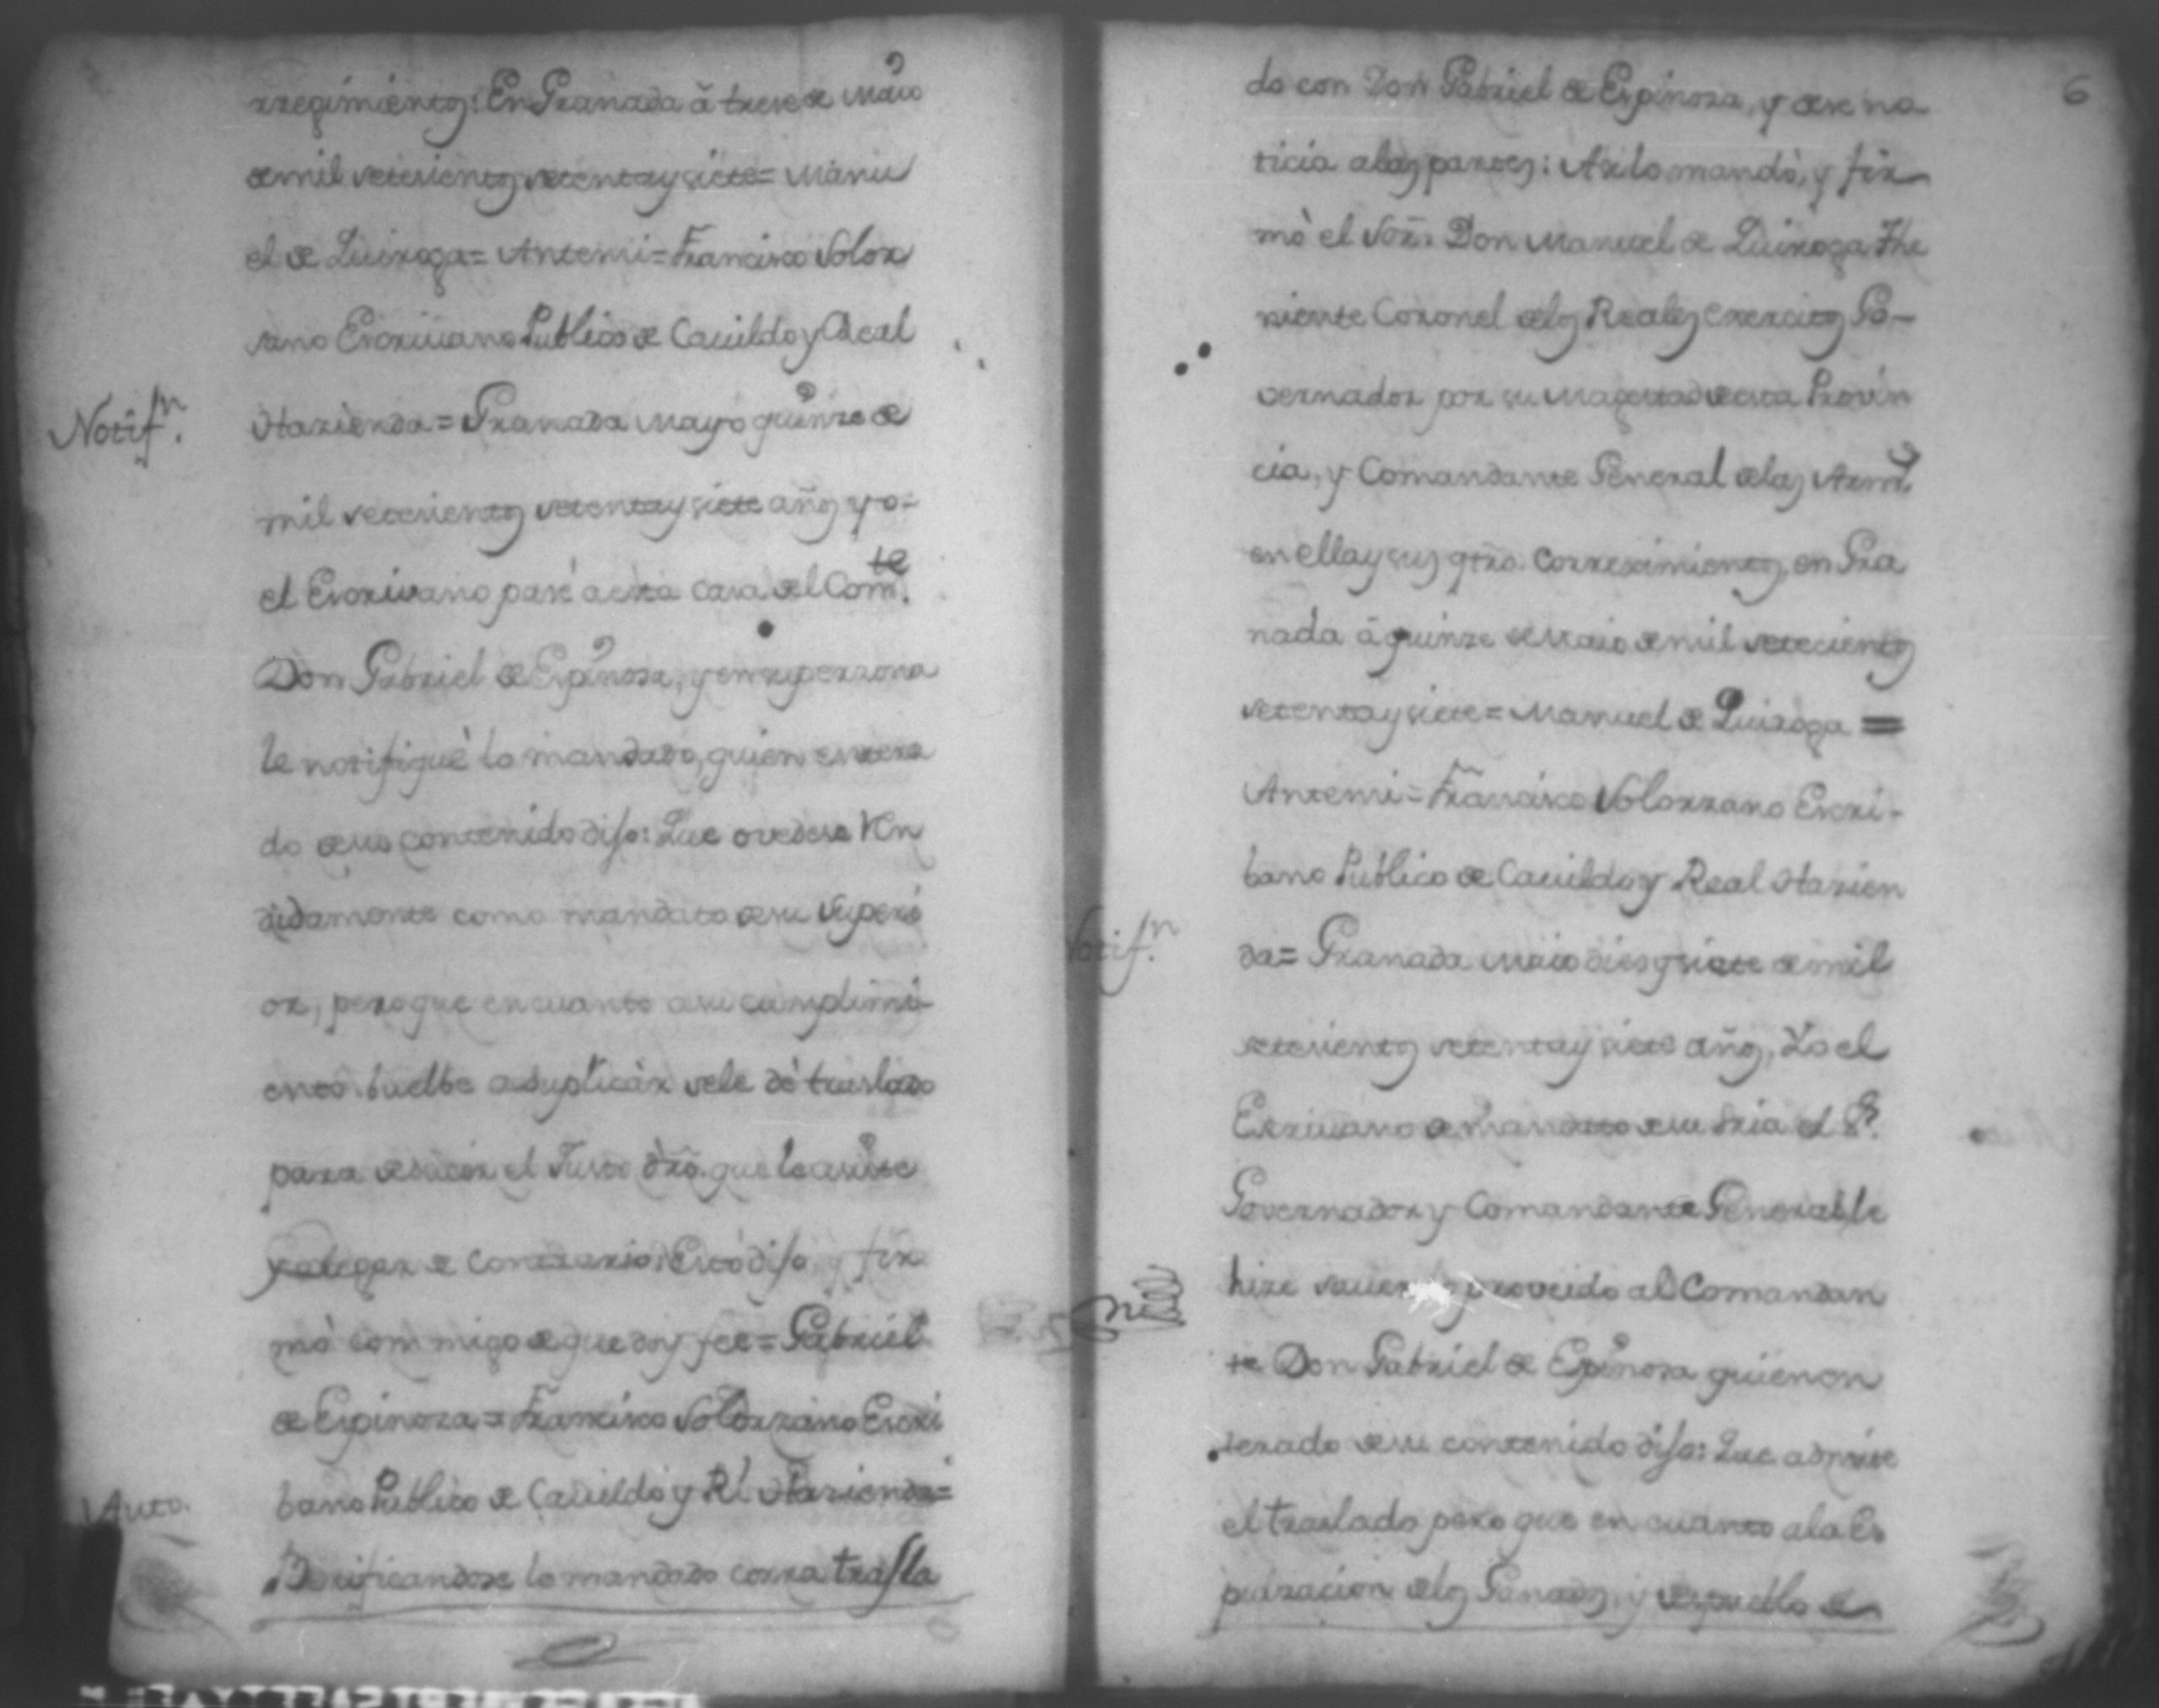 rregimientos: En Granada â trese de Maio
de mil setesientos setenta y siete = Manu
el de Quiroga = Antemi = Francisco Solor
sano Escriuano Publico de Cauildo y Real
Notifn.
Hazienda = Granada Mayo quinze de
mil setesientos setenta y siete años yo
el Escrivano pasé a esta casa del Comte.
Don Gabriel de Espinosa, y en su perzona
le notifiqué lo mandado, quien entera
do de su contenido dijo: Que ovedese Ren
didamente como mandato de su Superi
or, pero que en cuanto a su cumplimi-
ento buelbe a suplicàr sele dè traslado
para deducir el Justo dro. que le asiste
y alegar de contrario: Esto dijo, y fir
mò commigo de que doy feè = Gabriel
de Espinoza = Francisco Solorzano Escri
bano Publico de Cauildo y Rl Hazienda =
Auto.
Berificandose lo mandado corra trasla
6
do con Don Gabriel de Espinosa, y dese no
ticia a las partes: Asi lo mandò, y fir
mò el Sor. Don Manuel de Quiroga The
niente Coronel de los Reales exercitos Go-
vernador por su Magestad de esta Provin
cia, y Comandante General de las Arms.
en ella y sus qtro. Corregimientos, en Gra
nada â quinze de Maio de mil setecientos
setenta y siete = Manuel de Quiroga =
Antemi = Francisco Solorzano Escri-
bano Publico de Cauildo y Real Hazien
Notifn.
da = Granada Maio dies y siete de mil
setesientos setenta y siete años, Yo el
Escriuano de mandato de su Sria el Sr.
Governador y Comandante General le
hize sauer proveido al Comandan
te Don Gabriel de Espinosa quien en
terado de su contenido dijo: Que admite
el traslado pero que en cuanto a la Es
purzacion de los Ganados, y despueblo de